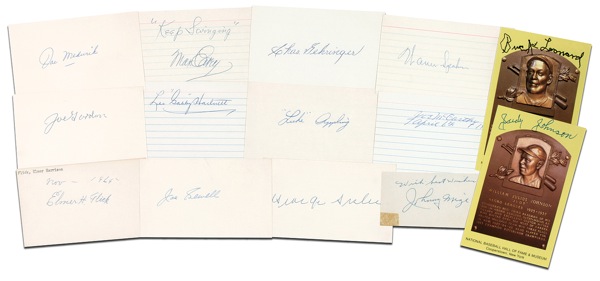 Joe Medwick
"Keep Swinging"
Max Carey
Chas Gehringer
Warren Spahn
Buck Leonard
Joe Gordon
Leo "Gabby" Hartnett
"Luke" Appling
Joe McCarthy
April 19
Judy Johnson
Flick, Elmer Harrison
Nov - 1962
Elmer H. Flick
Joe Sewell
George Sisler
With best wishes
Johnny Mize
WILLIAM JULIUS JOHNSON
NATIONAL BASEBALL HALL OF FAME & MUSEUM
Cooperstown, New York